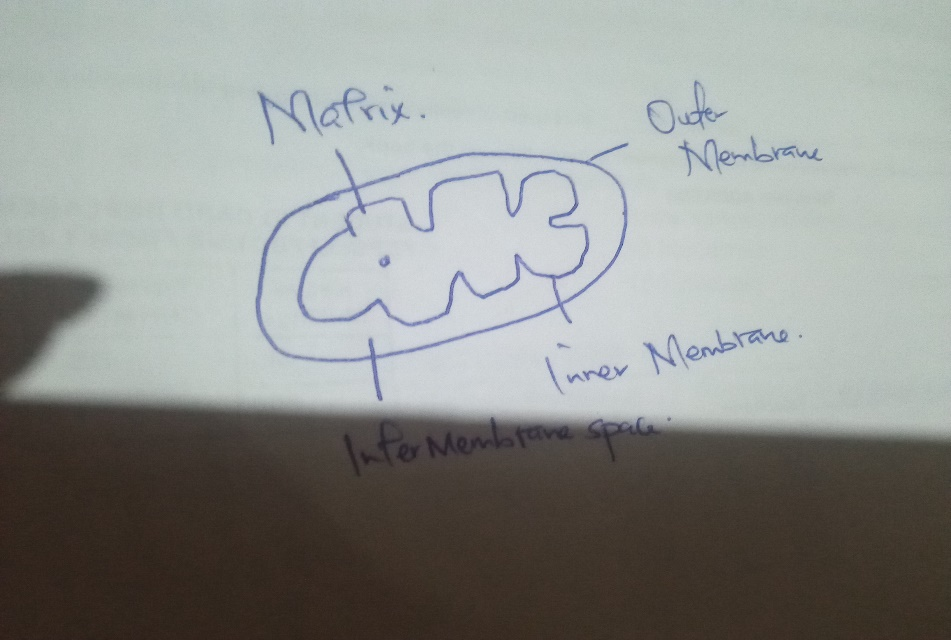 Matrix.
Outer
Membrane
Inner Membrane.
InterMembrane space.